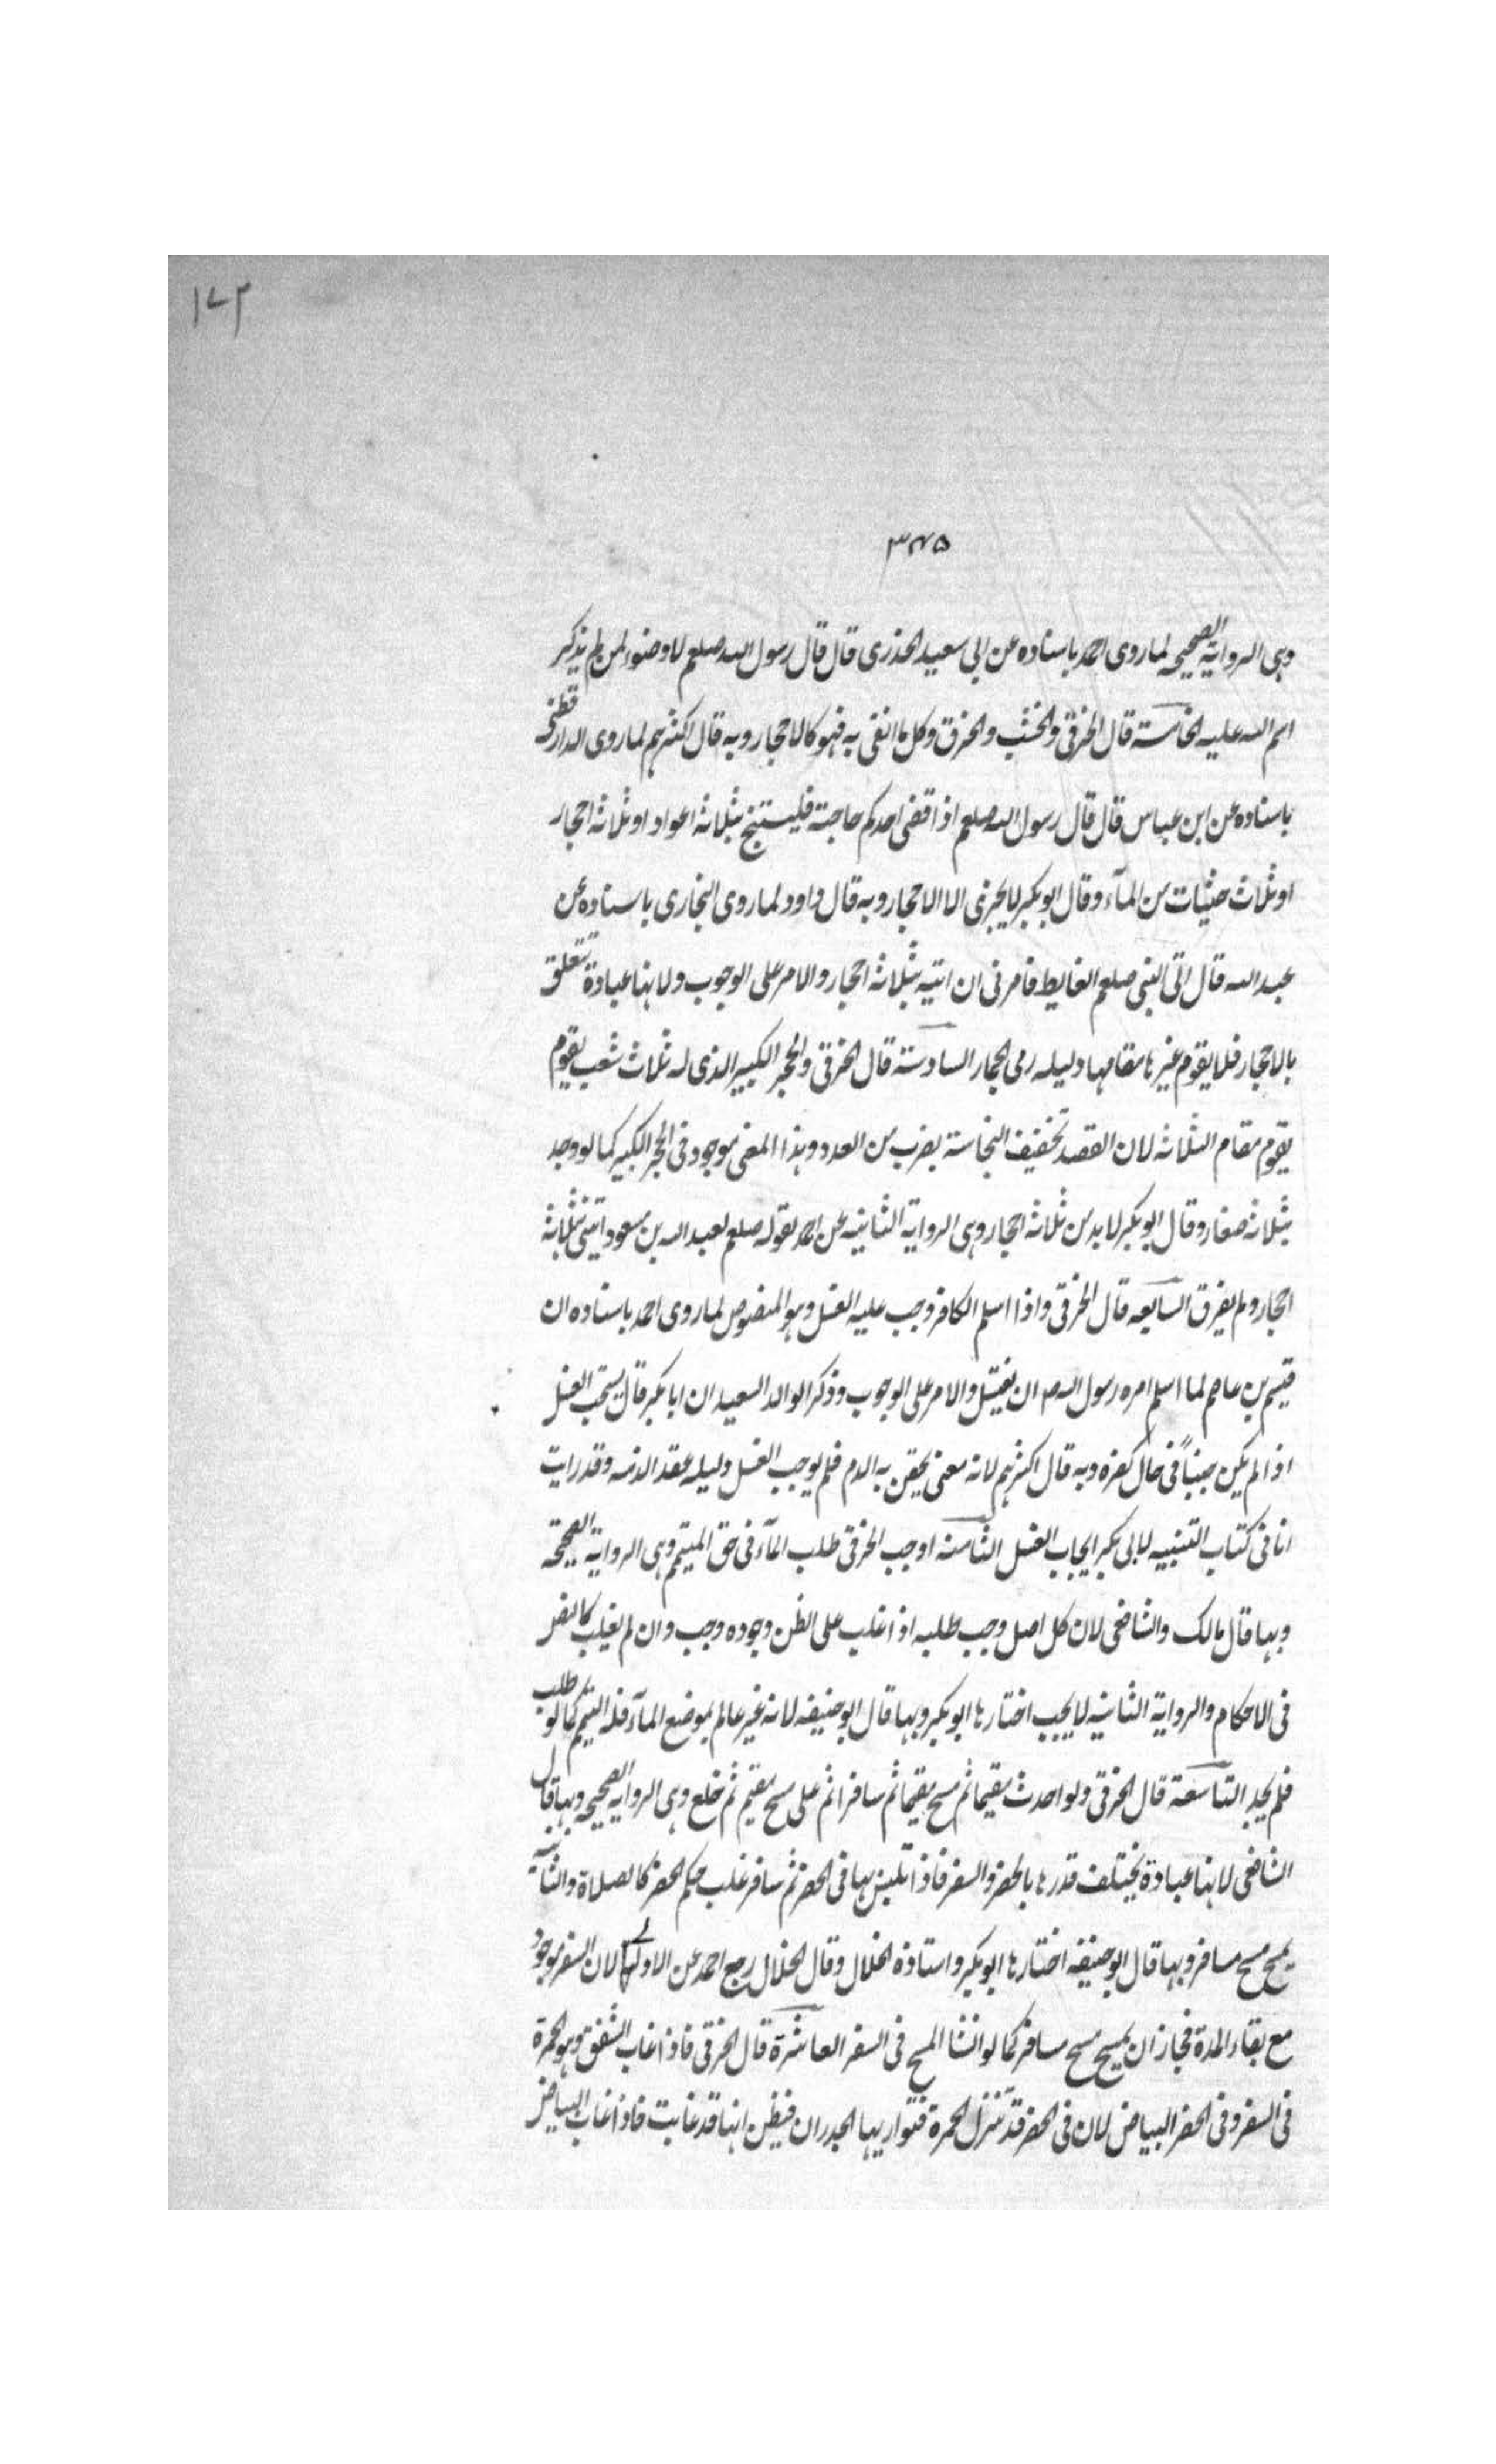 ١٧٣
٣٤٥
وهى الرواية الصحيحه لما روى احمد باسناده عن ابى سعيد الخدرى قال قال رسول الله صلعم لا وضوء لمن لم يذكر
اسم الله عليه الخامسة قال الخرقى والخشب والخرق وكل ما انقى به فهو كالاحجار وبه قال اكثرهم لما روى الدارقطنى
باسناده عن ابن عباس قال قال رسول الله صلعم اذا قضى احدكم حاجته فليستنج بثلاثة اعواد او ثلاثة احجار
او ثلاث حثيات من المآء وقال ابو بكر لا يجزى الا الاحجار وبه قال داود لما روى البخارى باسناده عن
عبد الله قال اتى النبى صلعم الغايط فامرنى ان اتيه بثلاثة احجار والامر على الوجوب ولانها عبادة تتعلق
بالاحجار فلا يقوم غيرها مقامها دليله رمى الجمار السادسة قال الخرقى والحجر الكبير الذى له ثلاث شعب يقوم
يقوم مقام الثلاثة لان القصد تخفيف النجاسة بضرب من العدد وهذا المعنى موجود فى الحجر الكبير كما لو وجد
بثلاثة صغار وقال ابو بكر لا بد من ثلاثة احجار وهى الرواية الثانيه عن احمد لقوله صلعم لعبد الله بن مسعود ايتنى بثلاثة
احجار ولم يفرق السابعه قال الخرقى واذا اسلم الكافر وجب عليه الغسل وهو المنصوص لما روى احمد باسناده ان
قيس بن عاصم لما اسلم امره رسول الله ص ان يغتسل والامر على الوجوب وذكر الوالد السعيد ان ابا بكر قال يستحب الغسل
اذا لم يكن جنباً فى حال كفره وبه قال اكثرهم لانه معنى يحقن به الدم فلم يوجب الغسل دليله عقد الذمه وقد رايت
انا فى كتاب التنبيه لابى بكر ايجاب الغسل الثامنه اوجب الخرقى طلب المآء فى حق المتيمم وهى الرواية الصحيحة
وبها قال مالك والشافعى لان كل اصل وجب طلبه اذا غلب على الظن وجوده وجب وان لم يغلب كالنص
فى الاحكام والرواية الثانيه لا يجب اختارها ابو بكر وبها قال ابو حنيفه لانه غير عالم بموضع المآء فله التيمم كما لو طلب
فلم يجد التاسعة قال الخرقى ولو احدث مقيما ثم مسح مقيما ثم سافر اتم على مسح مقيم ثم خلع وهى الرواية الصحيحه وبها قال
الشافعى لانها عبادة يختلف قدرها بالحضر والسفر فاذا تلبس بها فى الحضر ثم سافر غلب حكم الحضر كالصلاة والثانية
يمسح مسح مسافر وبها قال ابو حنيفه اختارها ابو بكر واستاذه الخلال وقال الخلال رجع احمد عن الاولى لان السفر موجود
مع بقاء المدة فجاز ان يمسح مسح مسافر كما لو انشا المسح فى السفر العاشرة قال الخرقى فاذا غاب الشفق وهو الحمرة
فى السفر وفى الحضر البياض لان فى الحضر قد تنزل الحمرة فتواريها الجدران فيظن انها قد غابت فاذا غاب البياض